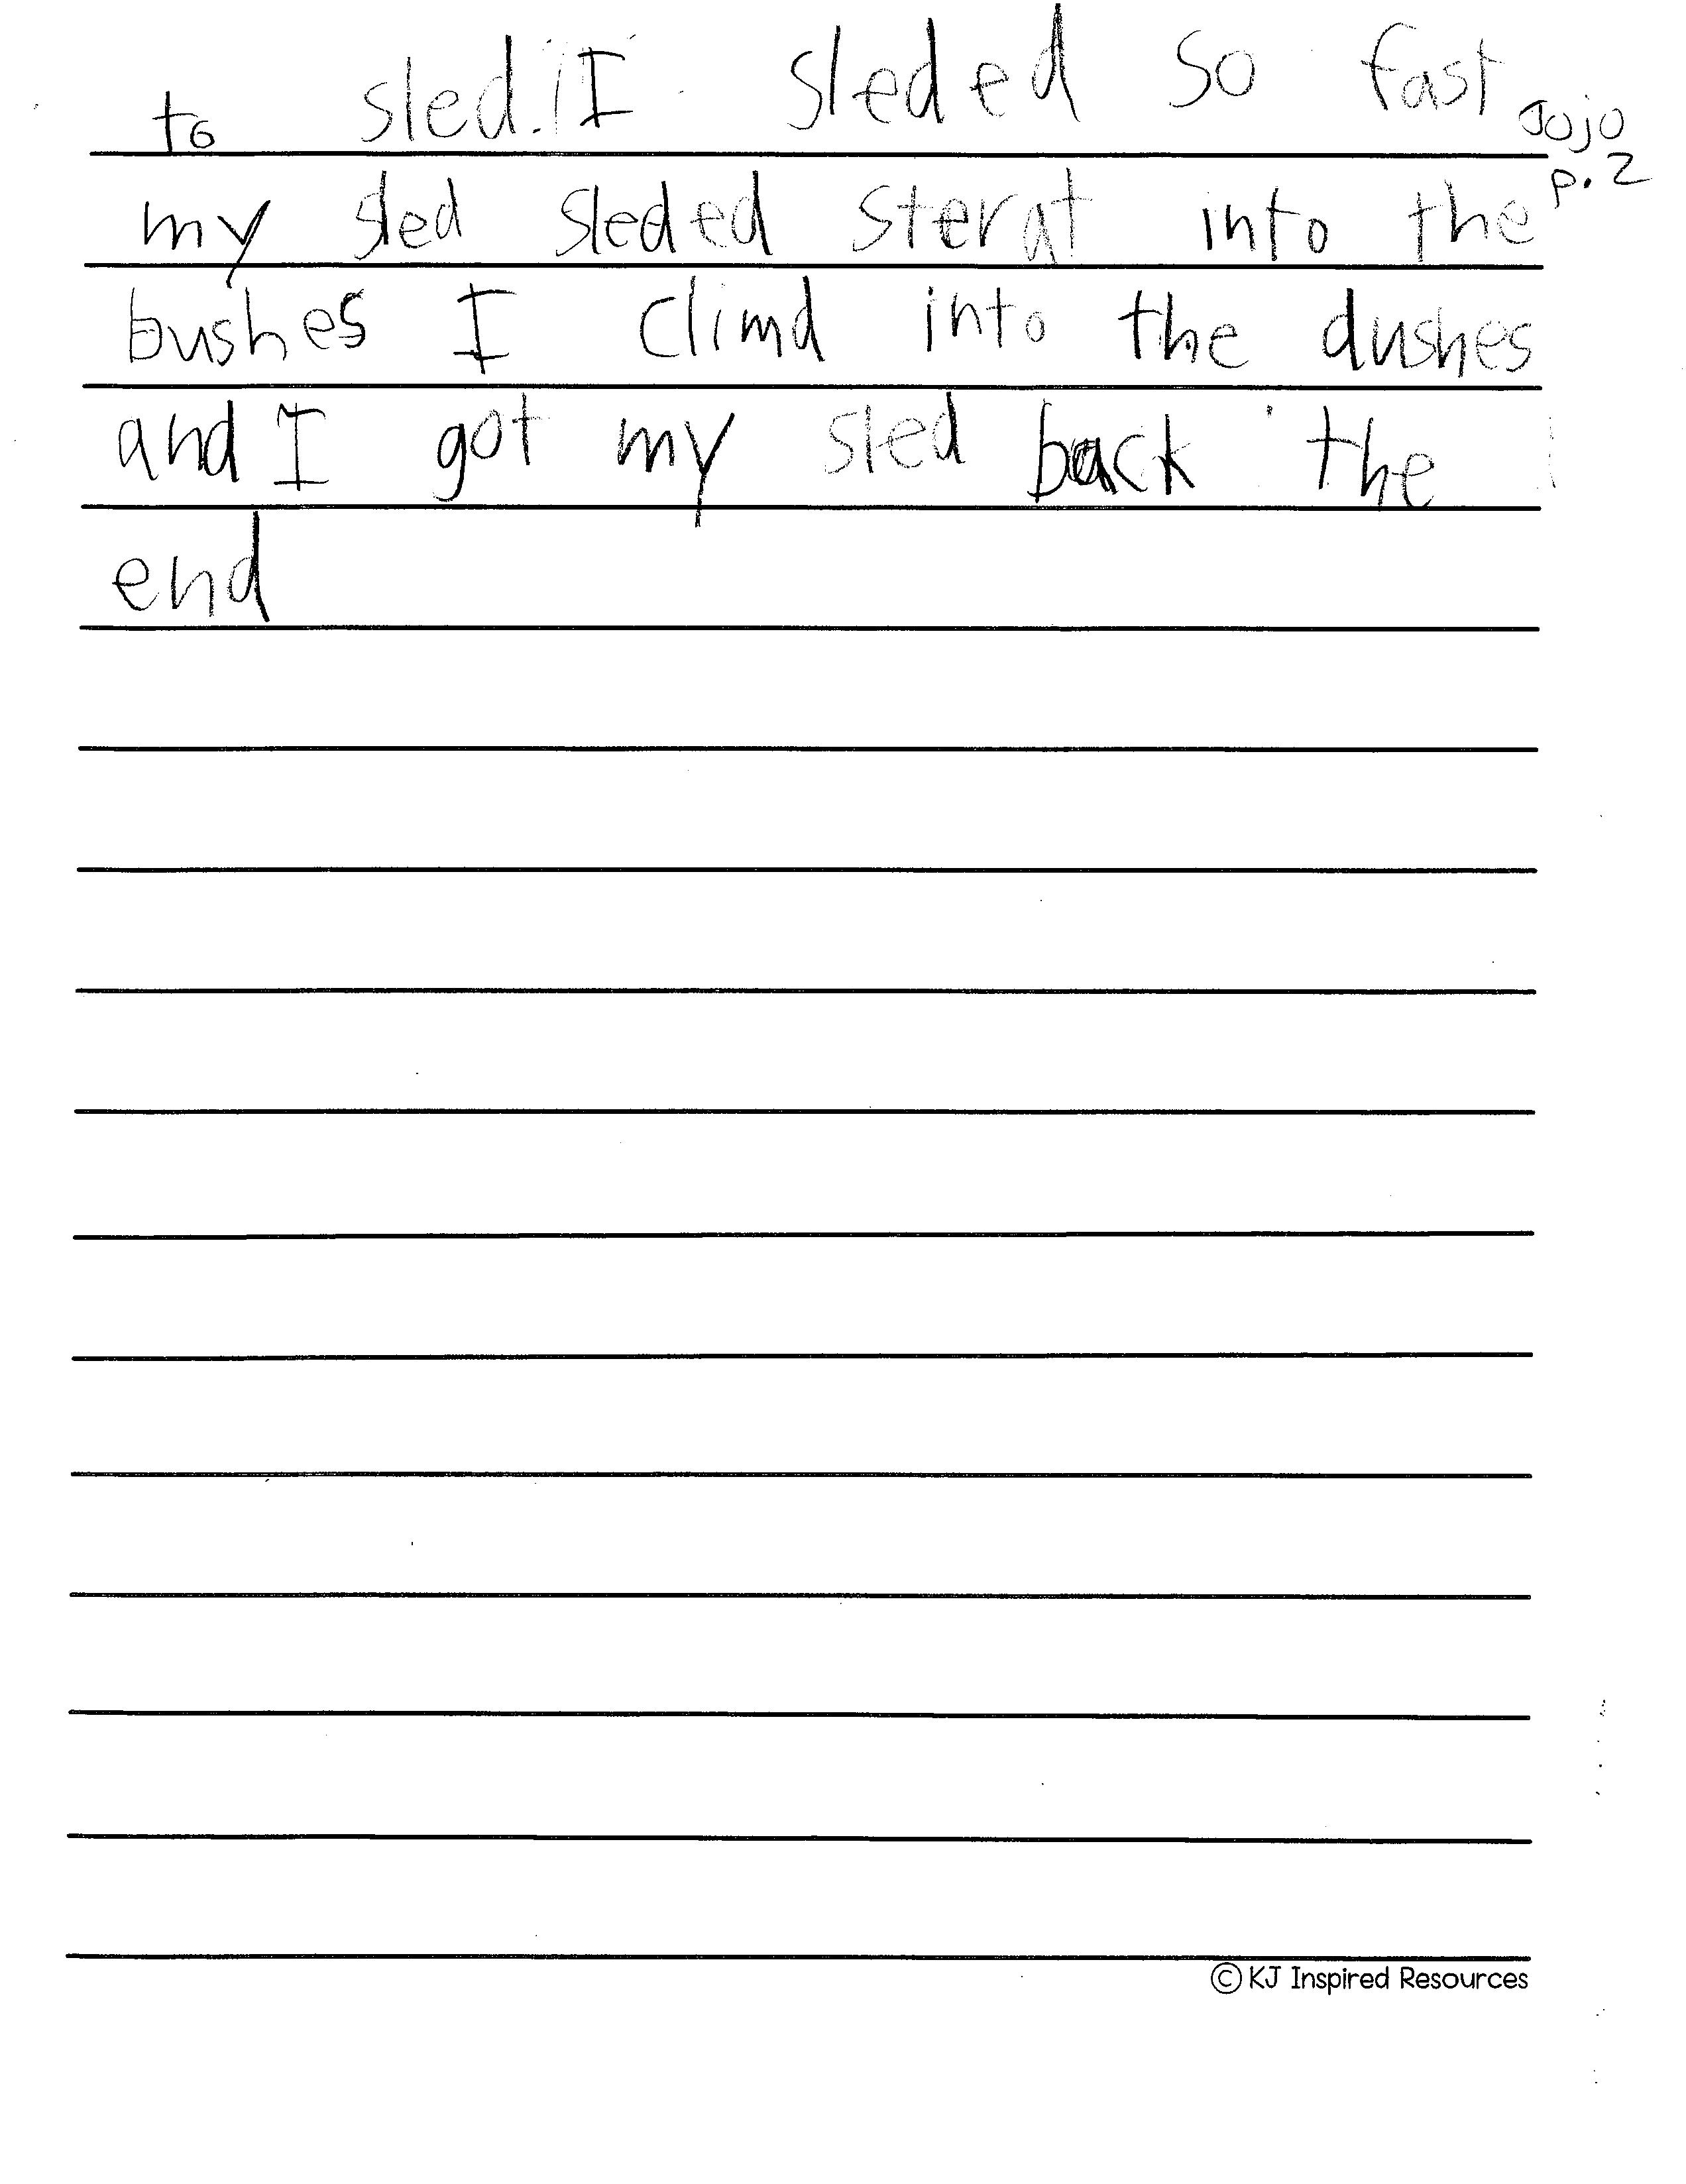 to sled. I sleded so fast
Jojo
p. 2
my sled sleded sterat into the
bushes I climd into the dushes
and I got my sled back the
end
© KJ Inspired Resources